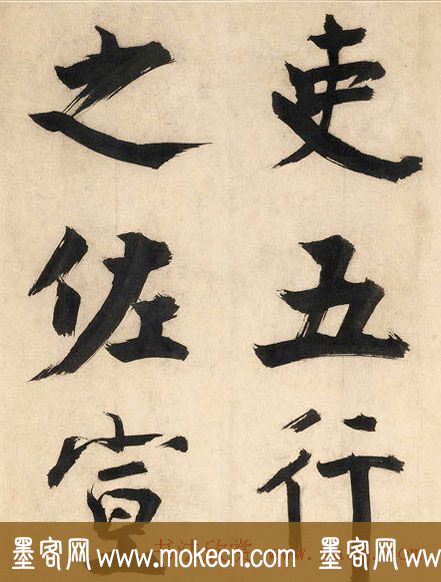 吏五行
之佐宣
墨客网 www.mokecn.com 墨客网
书法欣赏